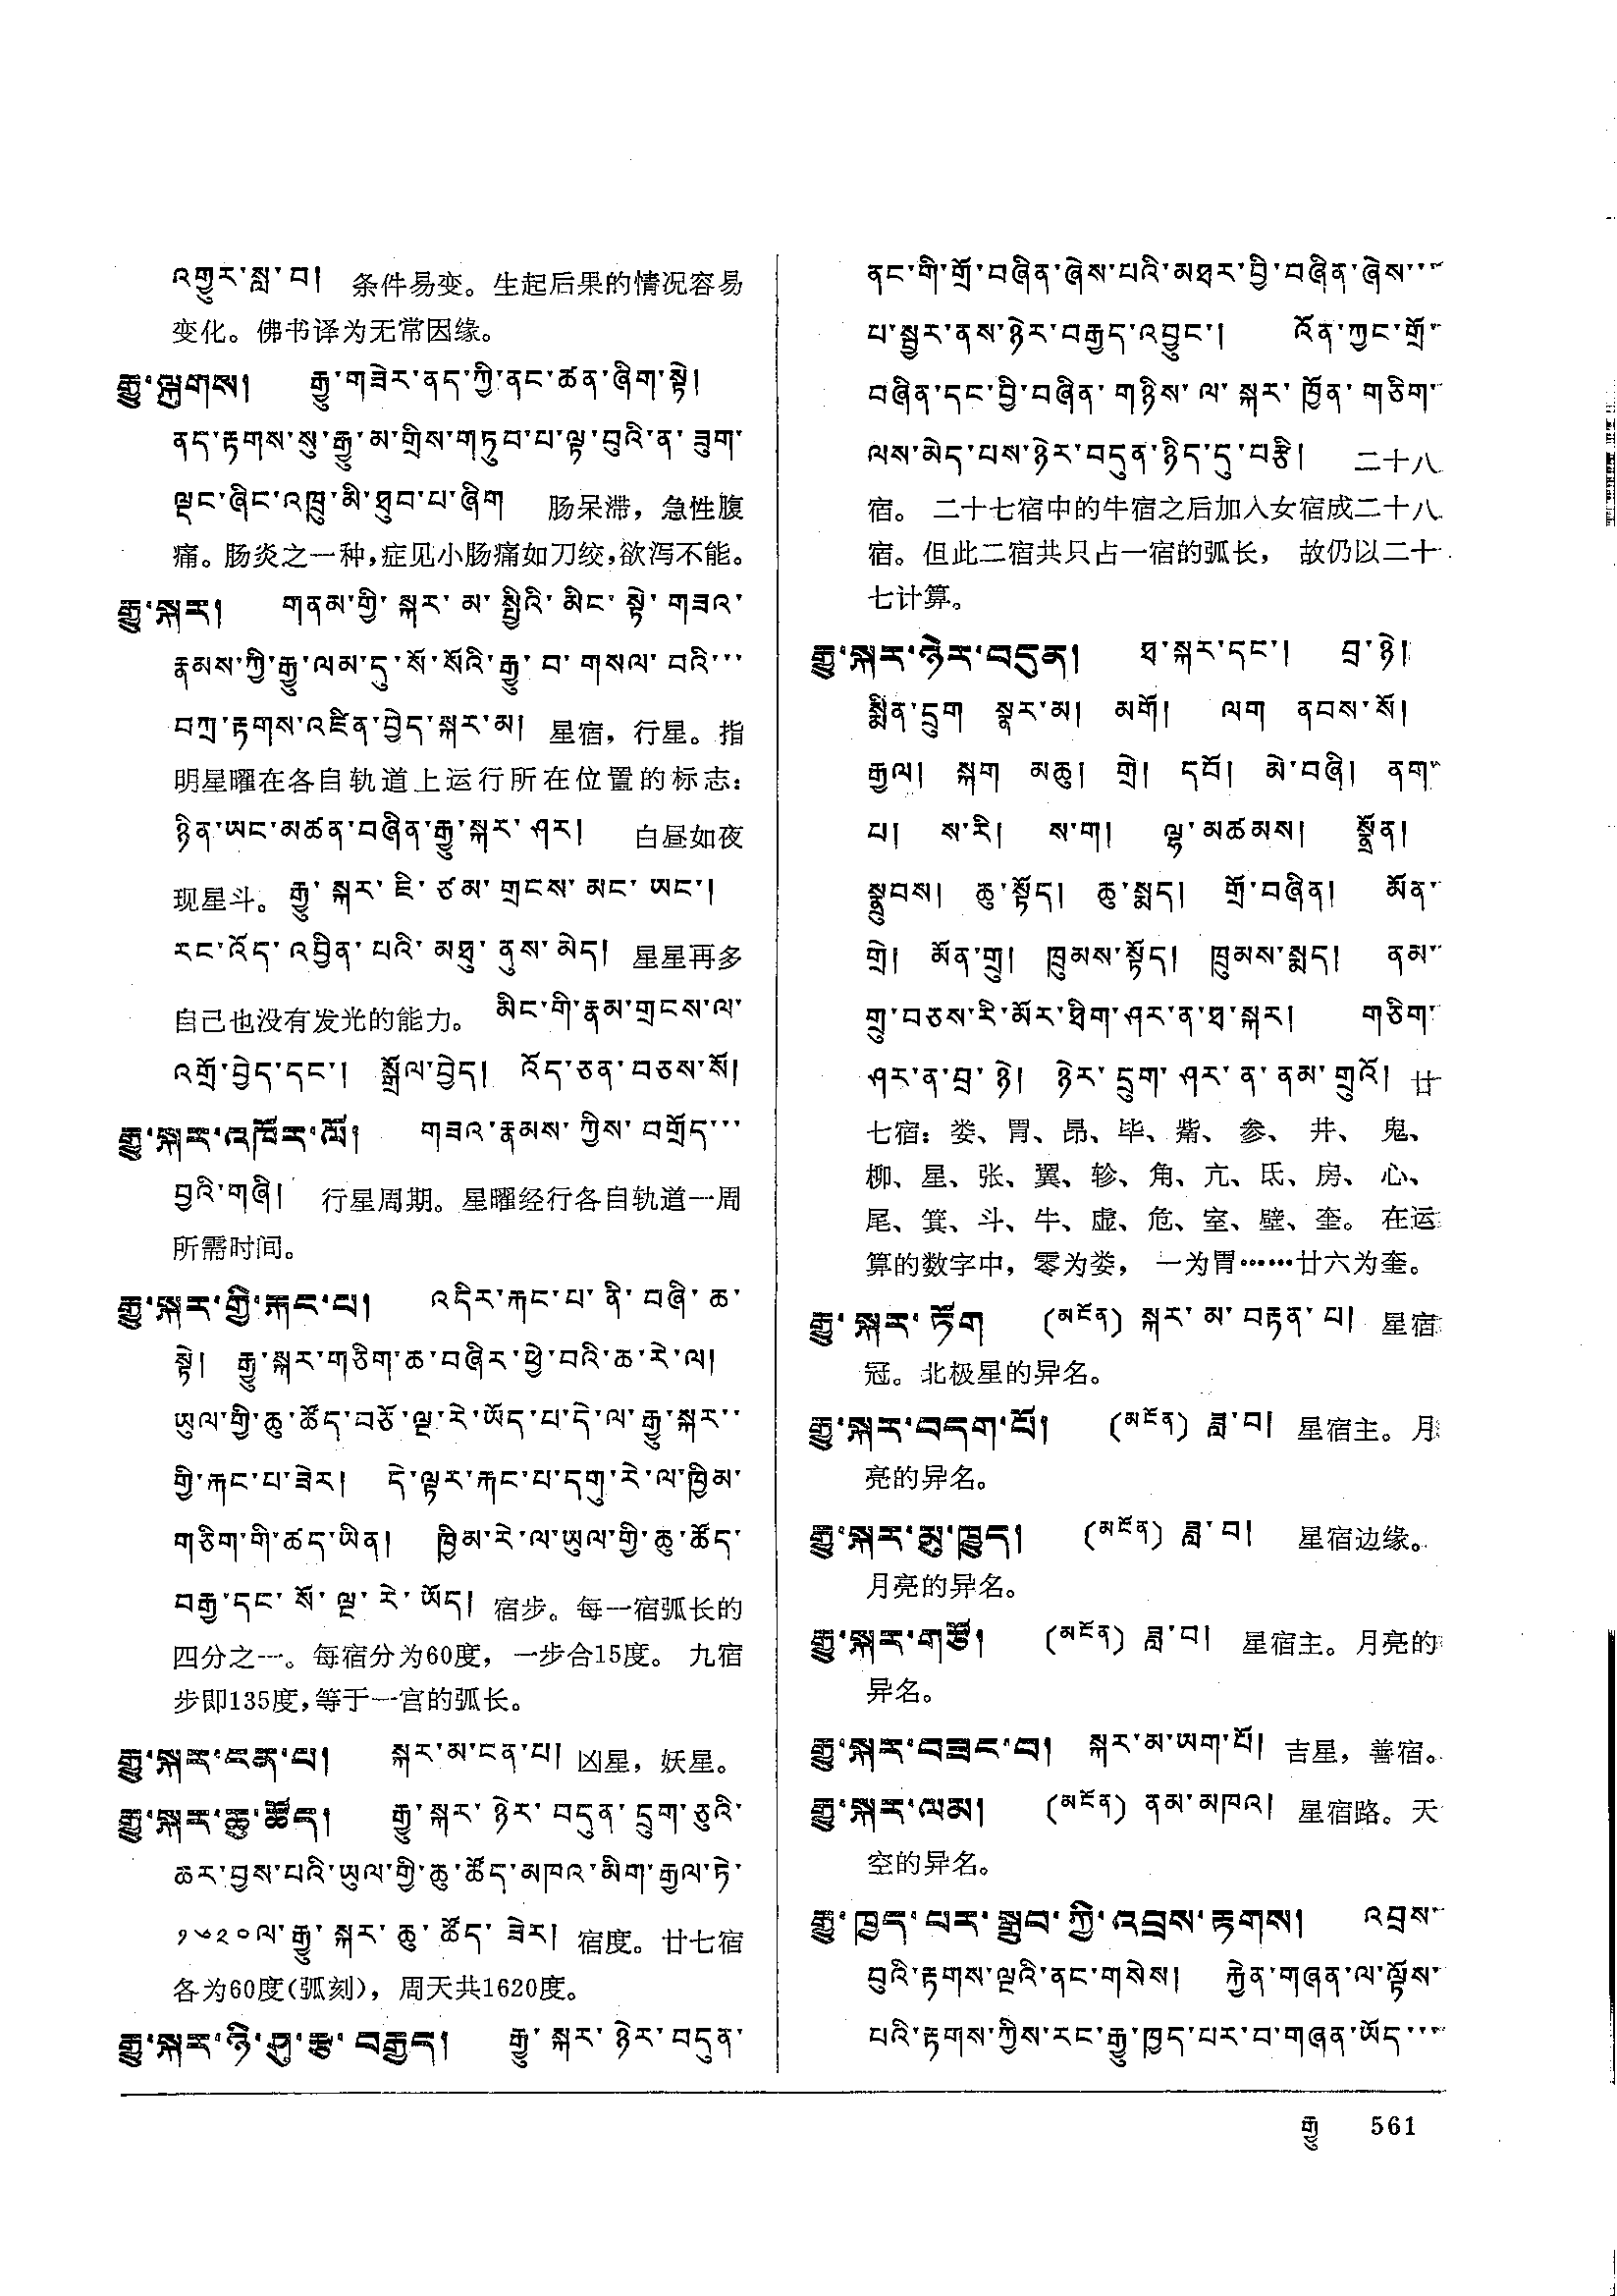 འགྱུར་སླ་བ། 条件易变。生起后果的情况容易
变化。佛书译为无常因缘。
རྒྱུ་ལྐུགས། རྒྱུ་གཟེར་ནད་ཀྱི་ནང་ཚན་ཞིག་སྟེ།
ནད་རྟགས་སུ་རྒྱུ་མ་གྲིས་གཏུབ་པ་ལྟ་བུའི་ན་ཟུག་
ལྡང་ཞིང་འཁྲུ་མི་ཐུབ་པ་ཞིག 肠呆滞，急性腹
痛。肠炎之一种，症见小肠痛如刀绞，欲泻不能。
རྒྱུ་སྐར། གནམ་གྱི་སྐར་མ་སྤྱིའི་མིང་སྟེ་གཟའ་
རྣམས་ཀྱི་རྒྱུ་ལམ་དུ་སོ་སོའི་རྒྱུ་བ་གསལ་བའི་་་
བཀྲ་རྟགས་འཛིན་བྱེད་སྐར་མ། 星宿，行星。指
明星曜在各自轨道上运行所在位置的标志：
ཉིན་ཡང་མཚན་བཞིན་རྒྱུ་སྐར་ཤར། 白昼如夜
现星斗。རྒྱུ་སྐར་ཇི་ཙམ་གྲངས་མང་ཡང་།
རང་འོད་འབྱིན་པའི་མཐུ་ནུས་མེད། 星星再多
自己也没有发光的能力。མིང་གི་རྣམ་གྲངས་ལ་
འགྲོ་བྱེད་དང་། སྒྲོལ་བྱེད། འོད་ཅན་བཅས་སོ།
རྒྱུ་སྐར་འཁོར་ལོ། གཟའ་རྣམས་ཀྱིས་བགྲོད་་་
བྱའི་གཞི། 行星周期。星曜经行各自轨道一周
所需时间。
རྒྱུ་སྐར་གྱི་རྐང་པ། འདིར་རྐང་པ་ནི་བཞི་ཆ་
སྟེ། རྒྱུ་སྐར་གཅིག་ཆ་བཞིར་ཕྱེ་བའི་ཆ་རེ་ལ།
ཡུལ་གྱི་ཆུ་ཚོད་བཅོ་ལྔ་རེ་ཡོད་པ་དེ་ལ་རྒྱུ་སྐར་་
གྱི་རྐང་པ་ཟེར། དེ་ལྟར་རྐང་པ་དགུ་རེ་ལ་ཁྱིམ་
གཅིག་གི་ཚད་ཡིན། ཁྱིམ་རེ་ལ་ཡུལ་གྱི་ཆུ་ཚོད་
བརྒྱ་དང་སོ་ལྔ་རེ་ཡོད། 宿步。每一宿弧长的
四分之一。每宿分为60度，一步合15度。九宿
步即135度，等于一宫的弧长。
རྒྱུ་སྐར་ངན་པ། སྐར་མ་ངན་པ། 凶星，妖星。
རྒྱུ་སྐར་ཆུ་ཚོད། རྒྱུ་སྐར་ཉེར་བདུན་དྲུག་ཅུའི་
ཆར་བྱས་པའི་ཡུལ་གྱི་ཆུ་ཚོད་མཁའ་མིག་རྒྱལ་ཏེ་
༡༦༢༠ལ་རྒྱུ་སྐར་ཆུ་ཚོད་ཟེར། 宿度。廿七宿
各为60度(弧刻)，周天共1620度。
རྒྱུ་སྐར་ཉི་ཤུ་རྩ་བརྒྱད། རྒྱུ་སྐར་ཉེར་བདུན་
ནང་གི་གྲོ་བཞིན་ཞེས་པའི་མཐར་བྱི་བཞིན་ཞེས་་་
པ་སྦྱར་ནས་ཉེར་བརྒྱད་འབྱུང་། འོན་ཀྱང་གྲོ་
བཞིན་དང་བྱི་བཞིན་གཉིས་ལ་སྐར་ཁྱོན་གཅིག་
ལས་མེད་པས་ཉེར་བདུན་ཉིད་དུ་བརྩི། 二十八
宿。二十七宿中的牛宿之后加入女宿成二十八
宿。但此二宿共只占一宿的弧长，故仍以二十
七计算。
རྒྱུ་སྐར་ཉེར་བདུན། ཐ་སྐར་དང་། བྲ་ཉེ།
སྨིན་དྲུག སྣར་མ། མགོ། ལག ནབས་སོ།
རྒྱལ། སྐག མཆུ། གྲེ། དབོ། མེ་བཞི། ནག་
པ། ས་རི། ས་ག། ལྷ་མཚམས། སྣྲོན།
སྣྲུབས། ཆུ་སྟོད། ཆུ་སྨད། གྲོ་བཞིན། མོན་
གྲེ། མོན་གྲུ། ཁྲུམས་སྟོད། ཁྲུམས་སྨད། ནམ་
གྲུ་བཅས་རི་མོར་ཐིག་ཤར་ན་ཐ་སྐར། གཅིག་
ཤར་ན་བྲ་ཉེ། ཉེར་དྲུག་ཤར་ན་ནམ་གྲུའོ། 廿
七宿：娄、胃、昴、毕、觜、参、井、鬼、
柳、星、张、翼、轸、角、亢、氐、房、心、
尾、箕、斗、牛、虚、危、室、壁、奎。在运
算的数字中，零为娄，一为胃……廿六为奎。
རྒྱུ་སྐར་ཏོག (མངོན) སྐར་མ་བརྟན་པ། 星宿
冠。北极星的异名。
རྒྱུ་སྐར་བདག་པོ། (མངོན) ཟླ་བ། 星宿主。月
亮的异名。
རྒྱུ་སྐར་མུ་ཁྱུད། (མངོན) ཟླ་བ། 星宿边缘。
月亮的异名。
རྒྱུ་སྐར་གཙོ། (མངོན) ཟླ་བ། 星宿主。月亮的
异名。
རྒྱུ་སྐར་བཟང་བ། སྐར་མ་ཡག་པོ། 吉星，善宿。
རྒྱུ་སྐར་ལམ། (མངོན) ནམ་མཁའ། 星宿路。天
空的异名。
རྒྱུ་ཁྱད་པར་སྒྲུབ་ཀྱི་འབྲས་རྟགས། འབྲས་
བུའི་རྟགས་ལྔའི་ནང་གསེས། རྐྱེན་གཞན་ལ་ལྟོས་
པའི་རྟགས་ཀྱིས་རང་རྒྱུ་ཁྱད་པར་བ་གཞན་ཡོད་་་
རྒྱུ 561